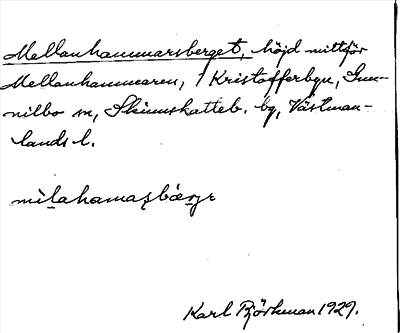 Mellanhammarsberget, höjd mittför
Mellanhammaren, 1 Kristofferbyn, Gun-
nilbo sn, Skinnskatteb. bg, Västman-
lands l.
Karl Björkman 1929.